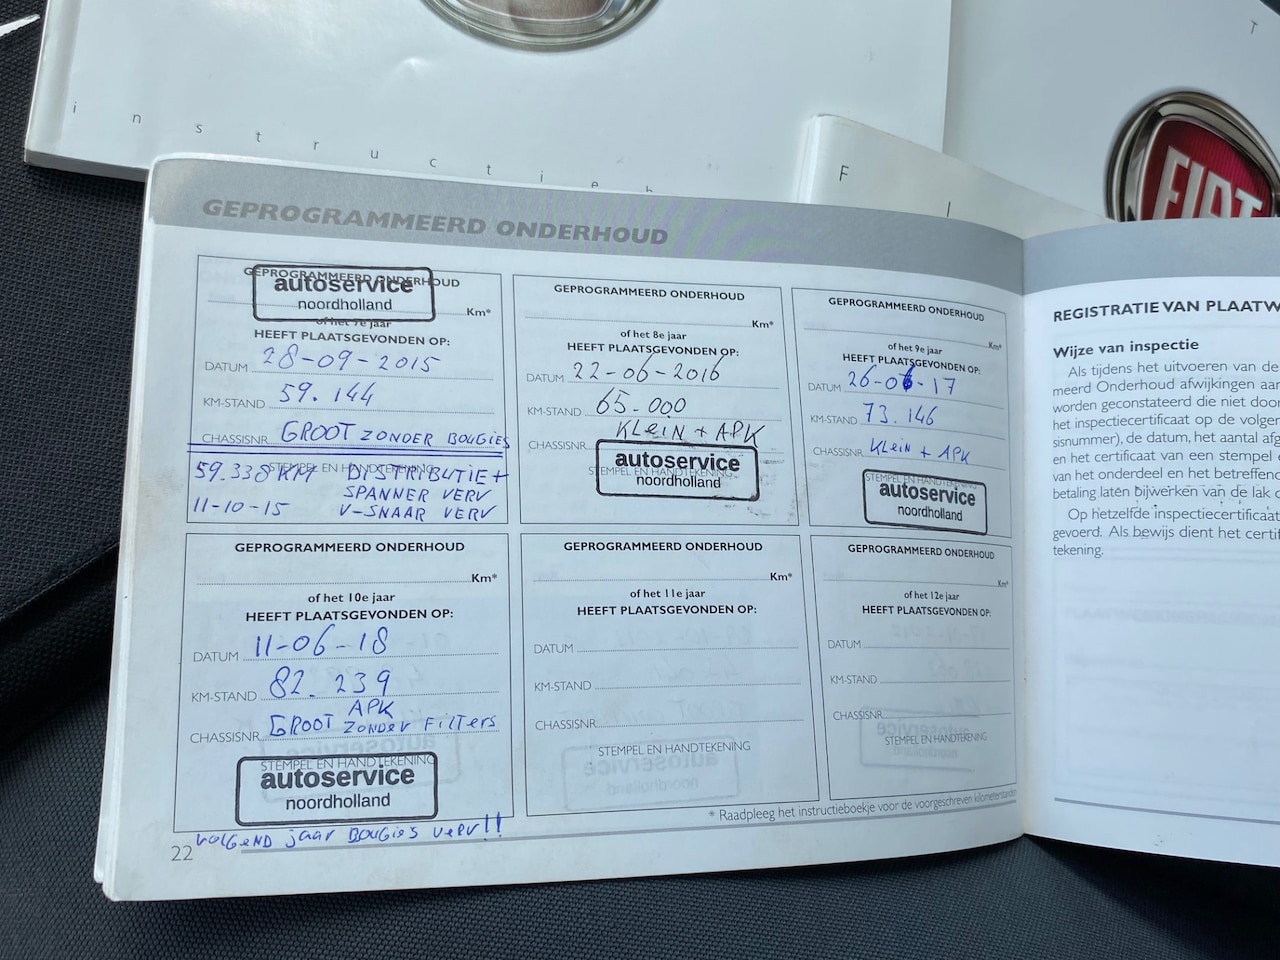 i n s t r u c t i e b
F
I
T
FIAT
GEPROGRAMMEERD ONDERHOUD
GEPROGRAMMEERD ONDERHOUD
autoservice
noordholland
Km*
of het 7e jaar
HEEFT PLAATSGEVONDEN OP:
DATUM 28-09-2015
KM-STAND 59.144
CHASSISNR. GROOT ZONDER BOUGIES
STEMPEL EN HANDTEKENING
59.338 KM DISTRIBUTIE +
SPANNER VERV
11-10-15 V-SNAAR VERV
GEPROGRAMMEERD ONDERHOUD
Km*
of het 8e jaar
HEEFT PLAATSGEVONDEN OP:
DATUM 22-06-2016
KM-STAND 65.000
KLEIN + APK
CHASSISNR.
autoservice
STEMPEL EN HANDTEKENING
noordholland
GEPROGRAMMEERD ONDERHOUD
Km*
of het 9e jaar
HEEFT PLAATSGEVONDEN OP:
DATUM 26-06-17
KM-STAND 73.146
CHASSISNR. KLEIN + APK
STEMPEL EN HANDTEKENING
autoservice
noordholland
GEPROGRAMMEERD ONDERHOUD
Km*
of het 10e jaar
HEEFT PLAATSGEVONDEN OP:
DATUM 11-06-18
KM-STAND 82.239
APK
CHASSISNR. GROOT ZONDER FILTERS
STEMPEL EN HANDTEKENING
autoservice
noordholland
GEPROGRAMMEERD ONDERHOUD
Km*
of het 11e jaar
HEEFT PLAATSGEVONDEN OP:
DATUM
KM-STAND
CHASSISNR.
STEMPEL EN HANDTEKENING
GEPROGRAMMEERD ONDERHOUD
Km*
of het 12e jaar
HEEFT PLAATSGEVONDEN OP:
DATUM
KM-STAND
CHASSISNR.
STEMPEL EN HANDTEKENING
* Raadpleeg het instructieboekje voor de voorgeschreven kilometerstanden
VOLGEND jaar BOUGIES verv!!
22
REGISTRATIE VAN PLAATW
Wijze van inspectie
Als tijdens het uitvoeren van de
meerd Onderhoud afwijkingen aan
worden geconstateerd die niet door
het inspectiecertificaat op de volgen
sisnummer), de datum, het aantal afg
en het certificaat van een stempel e
van het onderdeel en het betreffend
betaling laten bijwerken van de lak o
Op hetzelfde inspectiecertificaat
gevoerd. Als bewijs dient het certif
tekening.